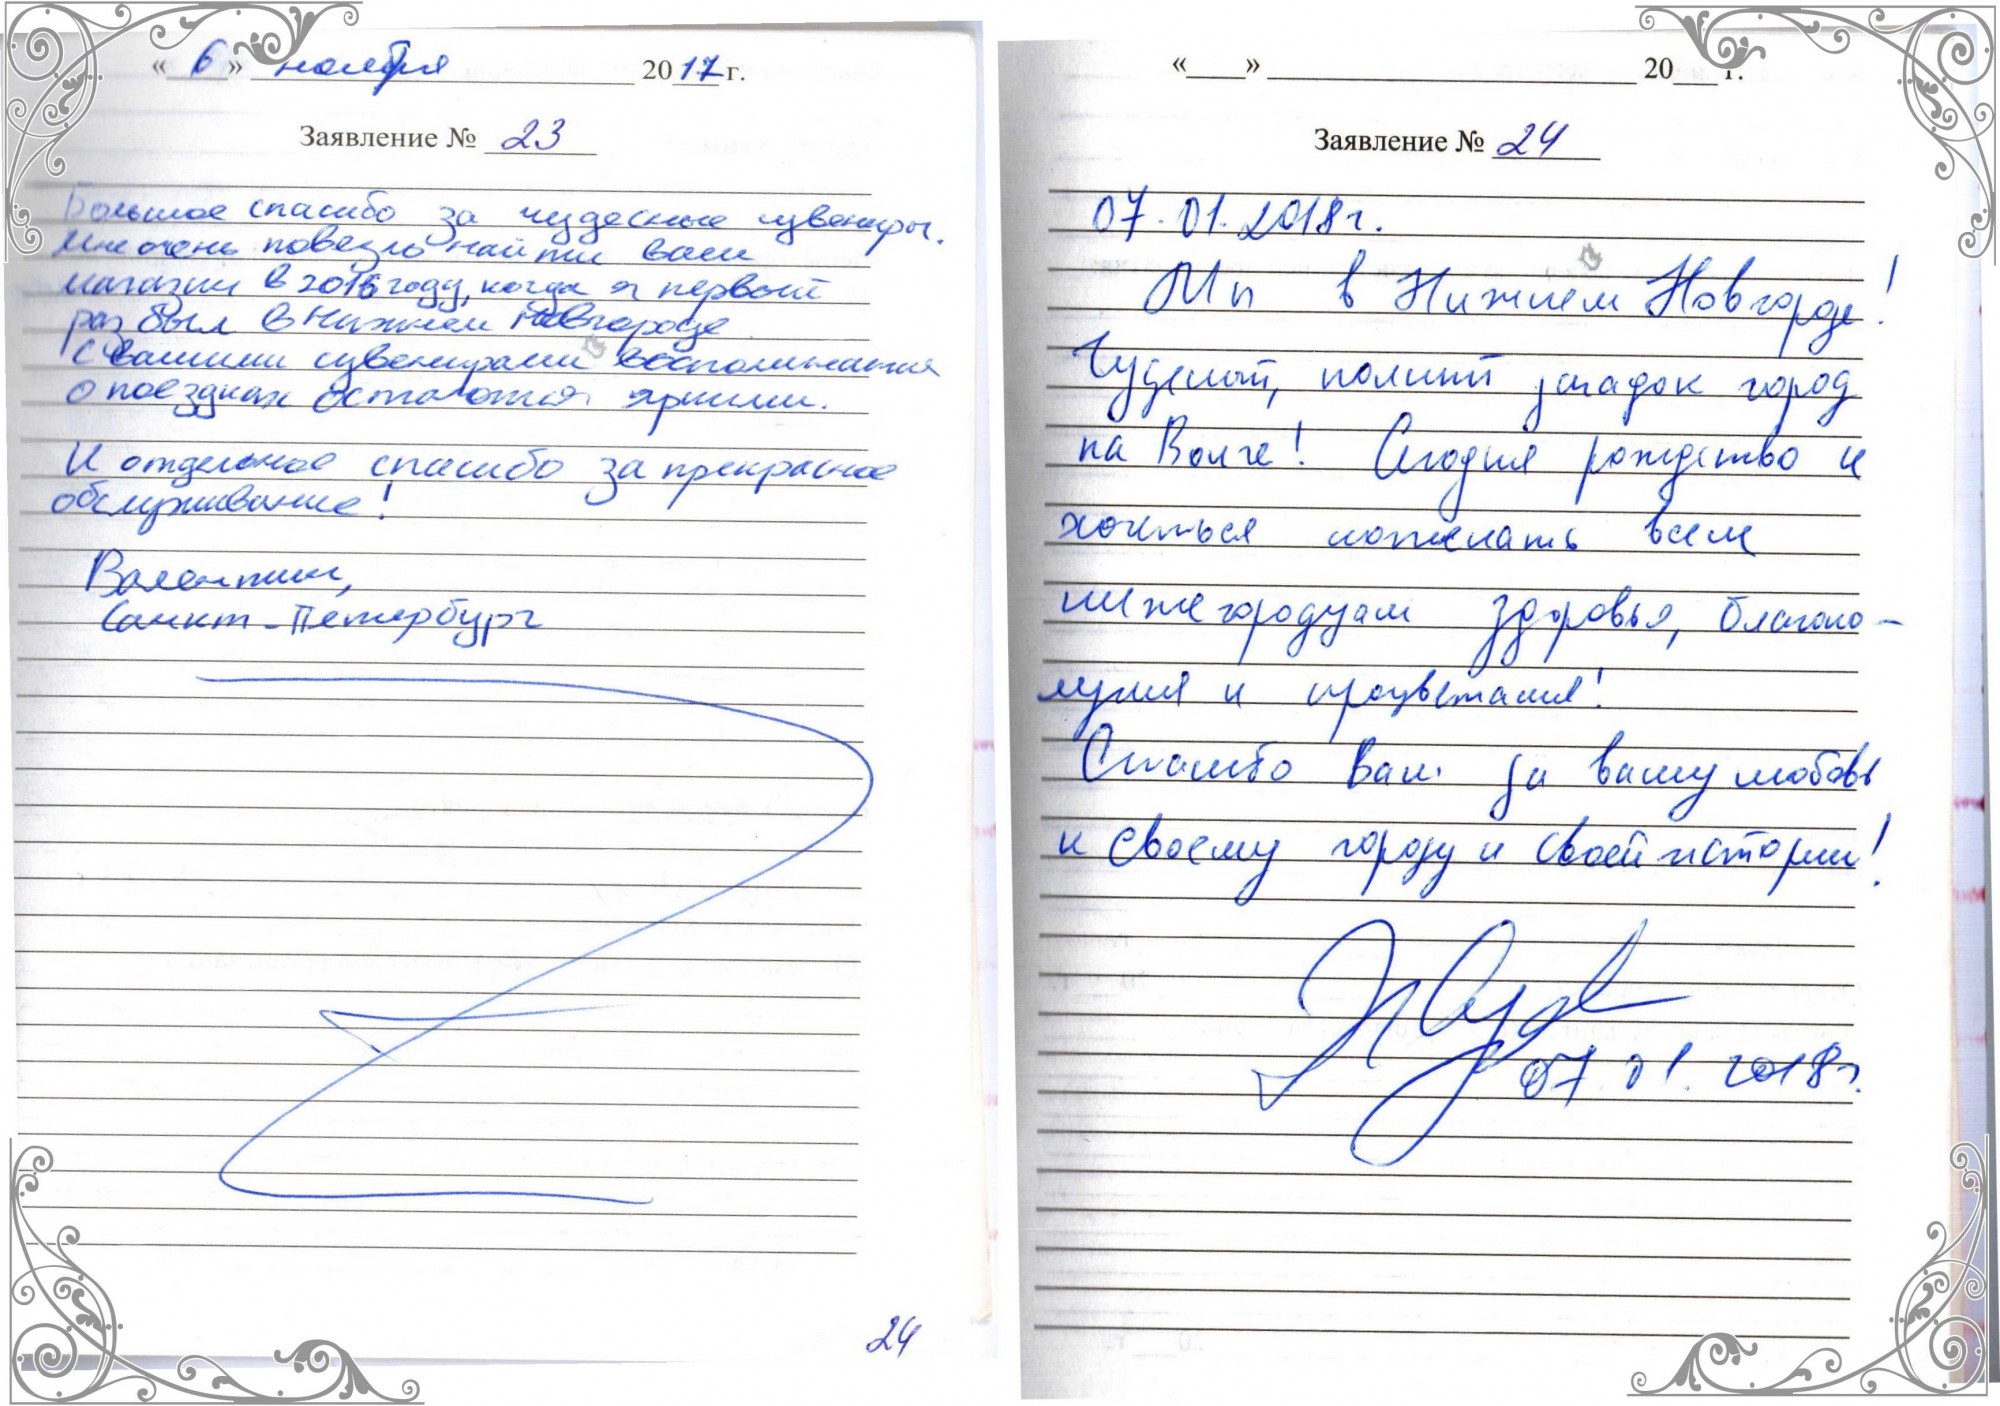 « 6 » ноября 2017 г.
Заявление № 23
Большое спасибо за чудесные сувениры.
Мне очень повезло найти ваш
магазин в 2016 году, когда я первый
раз был в Нижнем Новгороде
С вашими сувенирами воспоминания
о поездках остаются яркими.
И отдельное спасибо за прекрасное
обслуживание!
Валентин,
Санкт-Петербург
24
«____» ____ 20___ г.
Заявление № 24
07.01.2018г.
Мы в Нижнем Новгороде!
Чудесный, полный загадок город
на Волге! Сегодня рождество и
хочеться пожелать всем
нижегородцам здоровья, благопо-
лучия и процветания!
Спасибо Вам за вашу любовь
к своему городу и своей истории!
07.01.2018г.